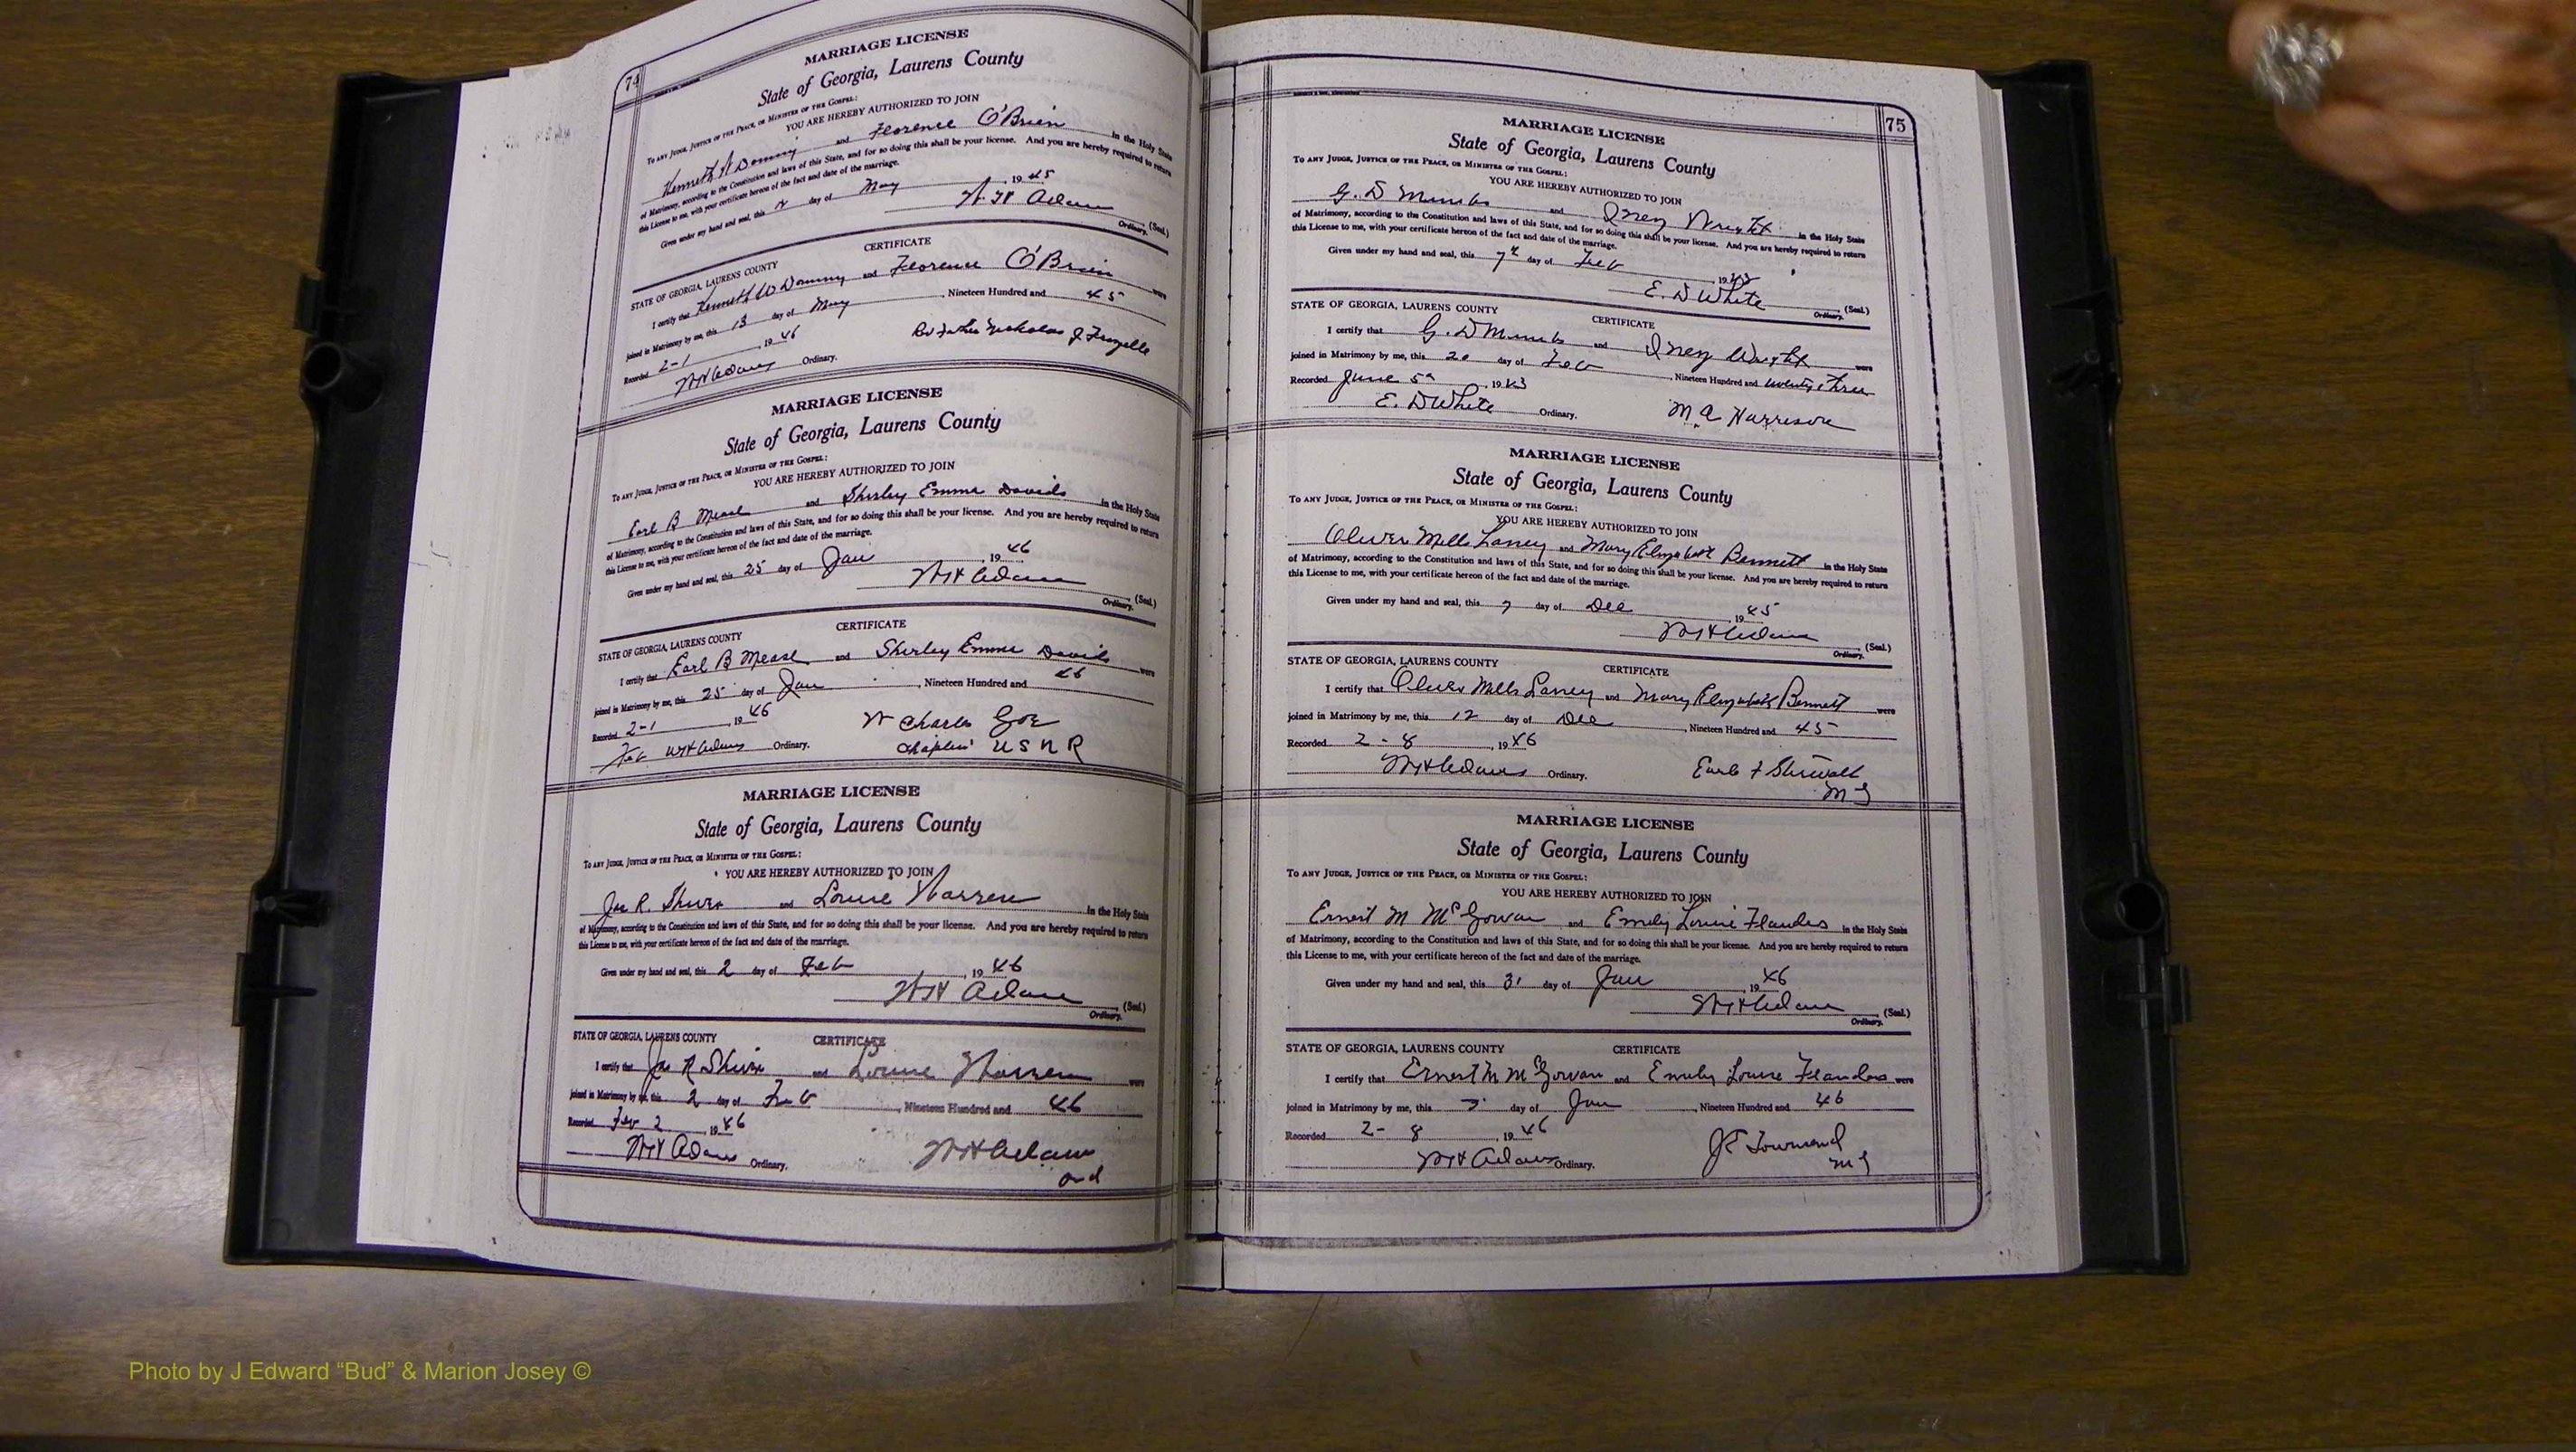 74
MARRIAGE LICENSE
State of Georgia, Laurens County
To any Judge, Justice of the Peace, or Minister of the Gospel:
YOU ARE HEREBY AUTHORIZED TO JOIN
Kenneth W and Florence O'Brien in the Holy State
of Matrimony, according to the Constitution and laws of this State, and for so doing this shall be your license. And you are hereby required to return
this License to me, with your certificate hereon of the fact and date of the marriage.
Given under my hand and seal, this day of May 1945
W H Adams (Seal.)
Ordinary.
CERTIFICATE
STATE OF GEORGIA, LAURENS COUNTY
I certify that Kenneth W and Florence O'Brien were
joined in Matrimony by me, this 13 day of May, Nineteen Hundred and 45
Recorded 2-1, 1946 Rev Father Nicholas J
W H Adams Ordinary.
MARRIAGE LICENSE
State of Georgia, Laurens County
To any Judge, Justice of the Peace, or Minister of the Gospel:
YOU ARE HEREBY AUTHORIZED TO JOIN
Earl B Mease and Shirley Emma Davids in the Holy State
of Matrimony, according to the Constitution and laws of this State, and for so doing this shall be your license. And you are hereby required to return
this License to me, with your certificate hereon of the fact and date of the marriage.
Given under my hand and seal, this 25 day of Jan, 1946
W H Adams (Seal.)
Ordinary.
CERTIFICATE
STATE OF GEORGIA, LAURENS COUNTY
I certify that Earl B Mease and Shirley Emma Davids were
joined in Matrimony by me, this 25 day of Jan, Nineteen Hundred and 46
Recorded 2-1, 1946 W Charles Goe
W H Adams Ordinary. Chaplin USNR
MARRIAGE LICENSE
State of Georgia, Laurens County
To any Judge, Justice of the Peace, or Minister of the Gospel:
YOU ARE HEREBY AUTHORIZED TO JOIN
R. and Louise Warren in the Holy State
of Matrimony, according to the Constitution and laws of this State, and for so doing this shall be your license. And you are hereby required to return
this License to me, with your certificate hereon of the fact and date of the marriage.
Given under my hand and seal, this 2 day of Feb, 1946
W H Adams (Seal.)
Ordinary.
STATE OF GEORGIA, LAURENS COUNTY CERTIFICATE
I certify that R and Louise Warren were
joined in Matrimony by me, this 2 day of Feb, Nineteen Hundred and 46
Recorded Feb 2, 1946
W H Adams Ordinary. W H Adams
Ord
75
MARRIAGE LICENSE
State of Georgia, Laurens County
To any Judge, Justice of the Peace, or Minister of the Gospel:
YOU ARE HEREBY AUTHORIZED TO JOIN
G. D and Wright in the Holy State
of Matrimony, according to the Constitution and laws of this State, and for so doing this shall be your license. And you are hereby required to return
this License to me, with your certificate hereon of the fact and date of the marriage.
Given under my hand and seal, this 7th day of Feb, 19
E. D White (Seal.)
Ordinary.
STATE OF GEORGIA, LAURENS COUNTY CERTIFICATE
I certify that G. D and Wright were
joined in Matrimony by me, this 20 day of Feb, Nineteen Hundred and twenty three
Recorded June 5th, 1923
E. D White Ordinary. M A Harrison
MARRIAGE LICENSE
State of Georgia, Laurens County
To any Judge, Justice of the Peace, or Minister of the Gospel:
YOU ARE HEREBY AUTHORIZED TO JOIN
Oliver Mells Laney and Mary Elizabeth Bennett in the Holy State
of Matrimony, according to the Constitution and laws of this State, and for so doing this shall be your license. And you are hereby required to return
this License to me, with your certificate hereon of the fact and date of the marriage.
Given under my hand and seal, this 7 day of Dec, 1945
W H Adams (Seal.)
Ordinary.
STATE OF GEORGIA, LAURENS COUNTY CERTIFICATE
I certify that Oliver Mells Laney and Mary Elizabeth Bennett were
joined in Matrimony by me, this 12 day of Dec, Nineteen Hundred and 45
Recorded 2-8, 1946
W H Adams Ordinary. Earl F Stirwalt
M G
MARRIAGE LICENSE
State of Georgia, Laurens County
To any Judge, Justice of the Peace, or Minister of the Gospel:
YOU ARE HEREBY AUTHORIZED TO JOIN
Ernest M McGowan and Emily Louise Flanders in the Holy State
of Matrimony, according to the Constitution and laws of this State, and for so doing this shall be your license. And you are hereby required to return
this License to me, with your certificate hereon of the fact and date of the marriage.
Given under my hand and seal, this 31 day of Jan, 1946
W H Adams (Seal.)
Ordinary.
STATE OF GEORGIA, LAURENS COUNTY CERTIFICATE
I certify that Ernest M McGowan and Emily Louise Flanders were
joined in Matrimony by me, this day of Jan, Nineteen Hundred and 46
Recorded 2-8, 1946
W H Adams Ordinary. J E Townsend
M G
Photo by J Edward “Bud” & Marion Josey ©